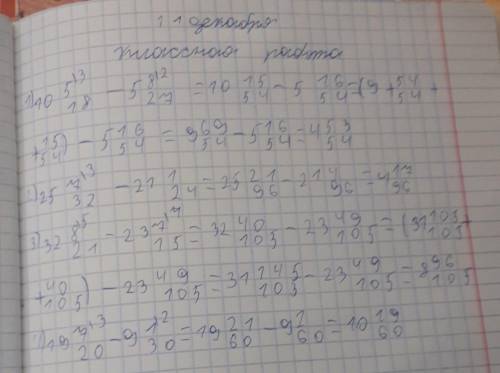 11 декабря
классная работа
1) 10 5\3/18 - 5 8\2/27 = 10 15/54 - 5 16/54 = (9 + 54/54 +
+ 15/54) - 5 16/54 = 9 69/54 - 5 16/54 = 4 53/54
2) 25 7\3/32 - 21 1/24 = 25 21/96 - 21 4/96 = 4 17/96
3) 32 8\5/21 - 23 7\7/15 = 32 40/105 - 23 49/105 = (31 105/105 +
+ 40/105) - 23 49/105 = 31 145/105 - 23 49/105 = 8 96/105
4) 19 7\3/20 - 9 1\2/30 = 19 21/60 - 9 2/60 = 10 19/60